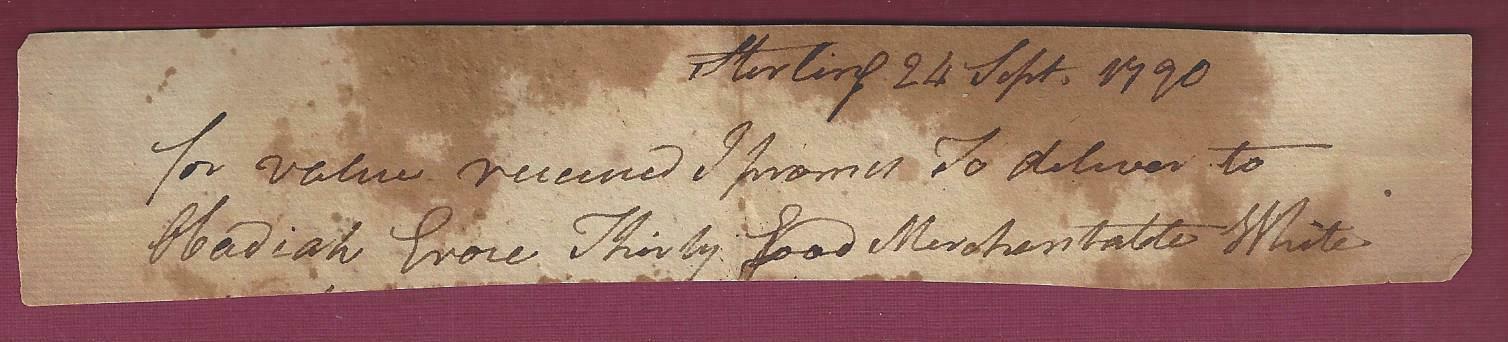 Sterling 24 Sept. 1790
for value received I promis To deliver to
Obadiah Grove Thirty Good Merchentable White